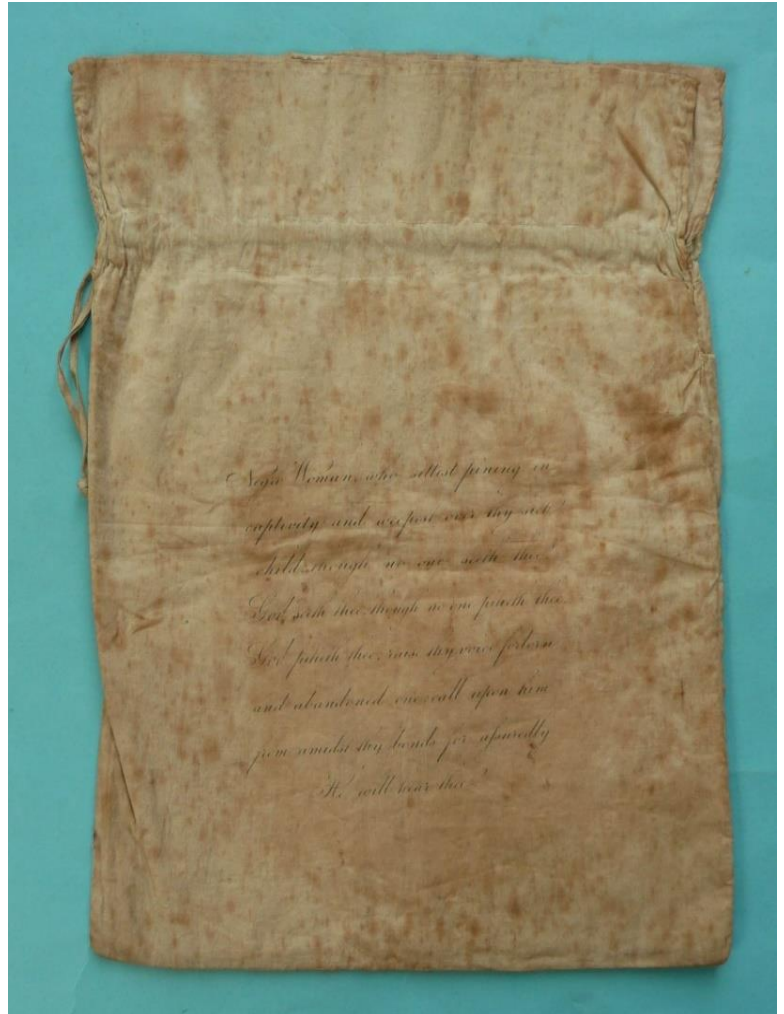 Negro Woman, who sittest pining in
captivity and weepest over thy sick
child though no one seeth thee
God seeth thee, though no one pitieth thee
God pitieth thee, raise thy voice forlorn
and abandoned one, call upon him
from amidst thy bonds for assuredly
He will hear thee